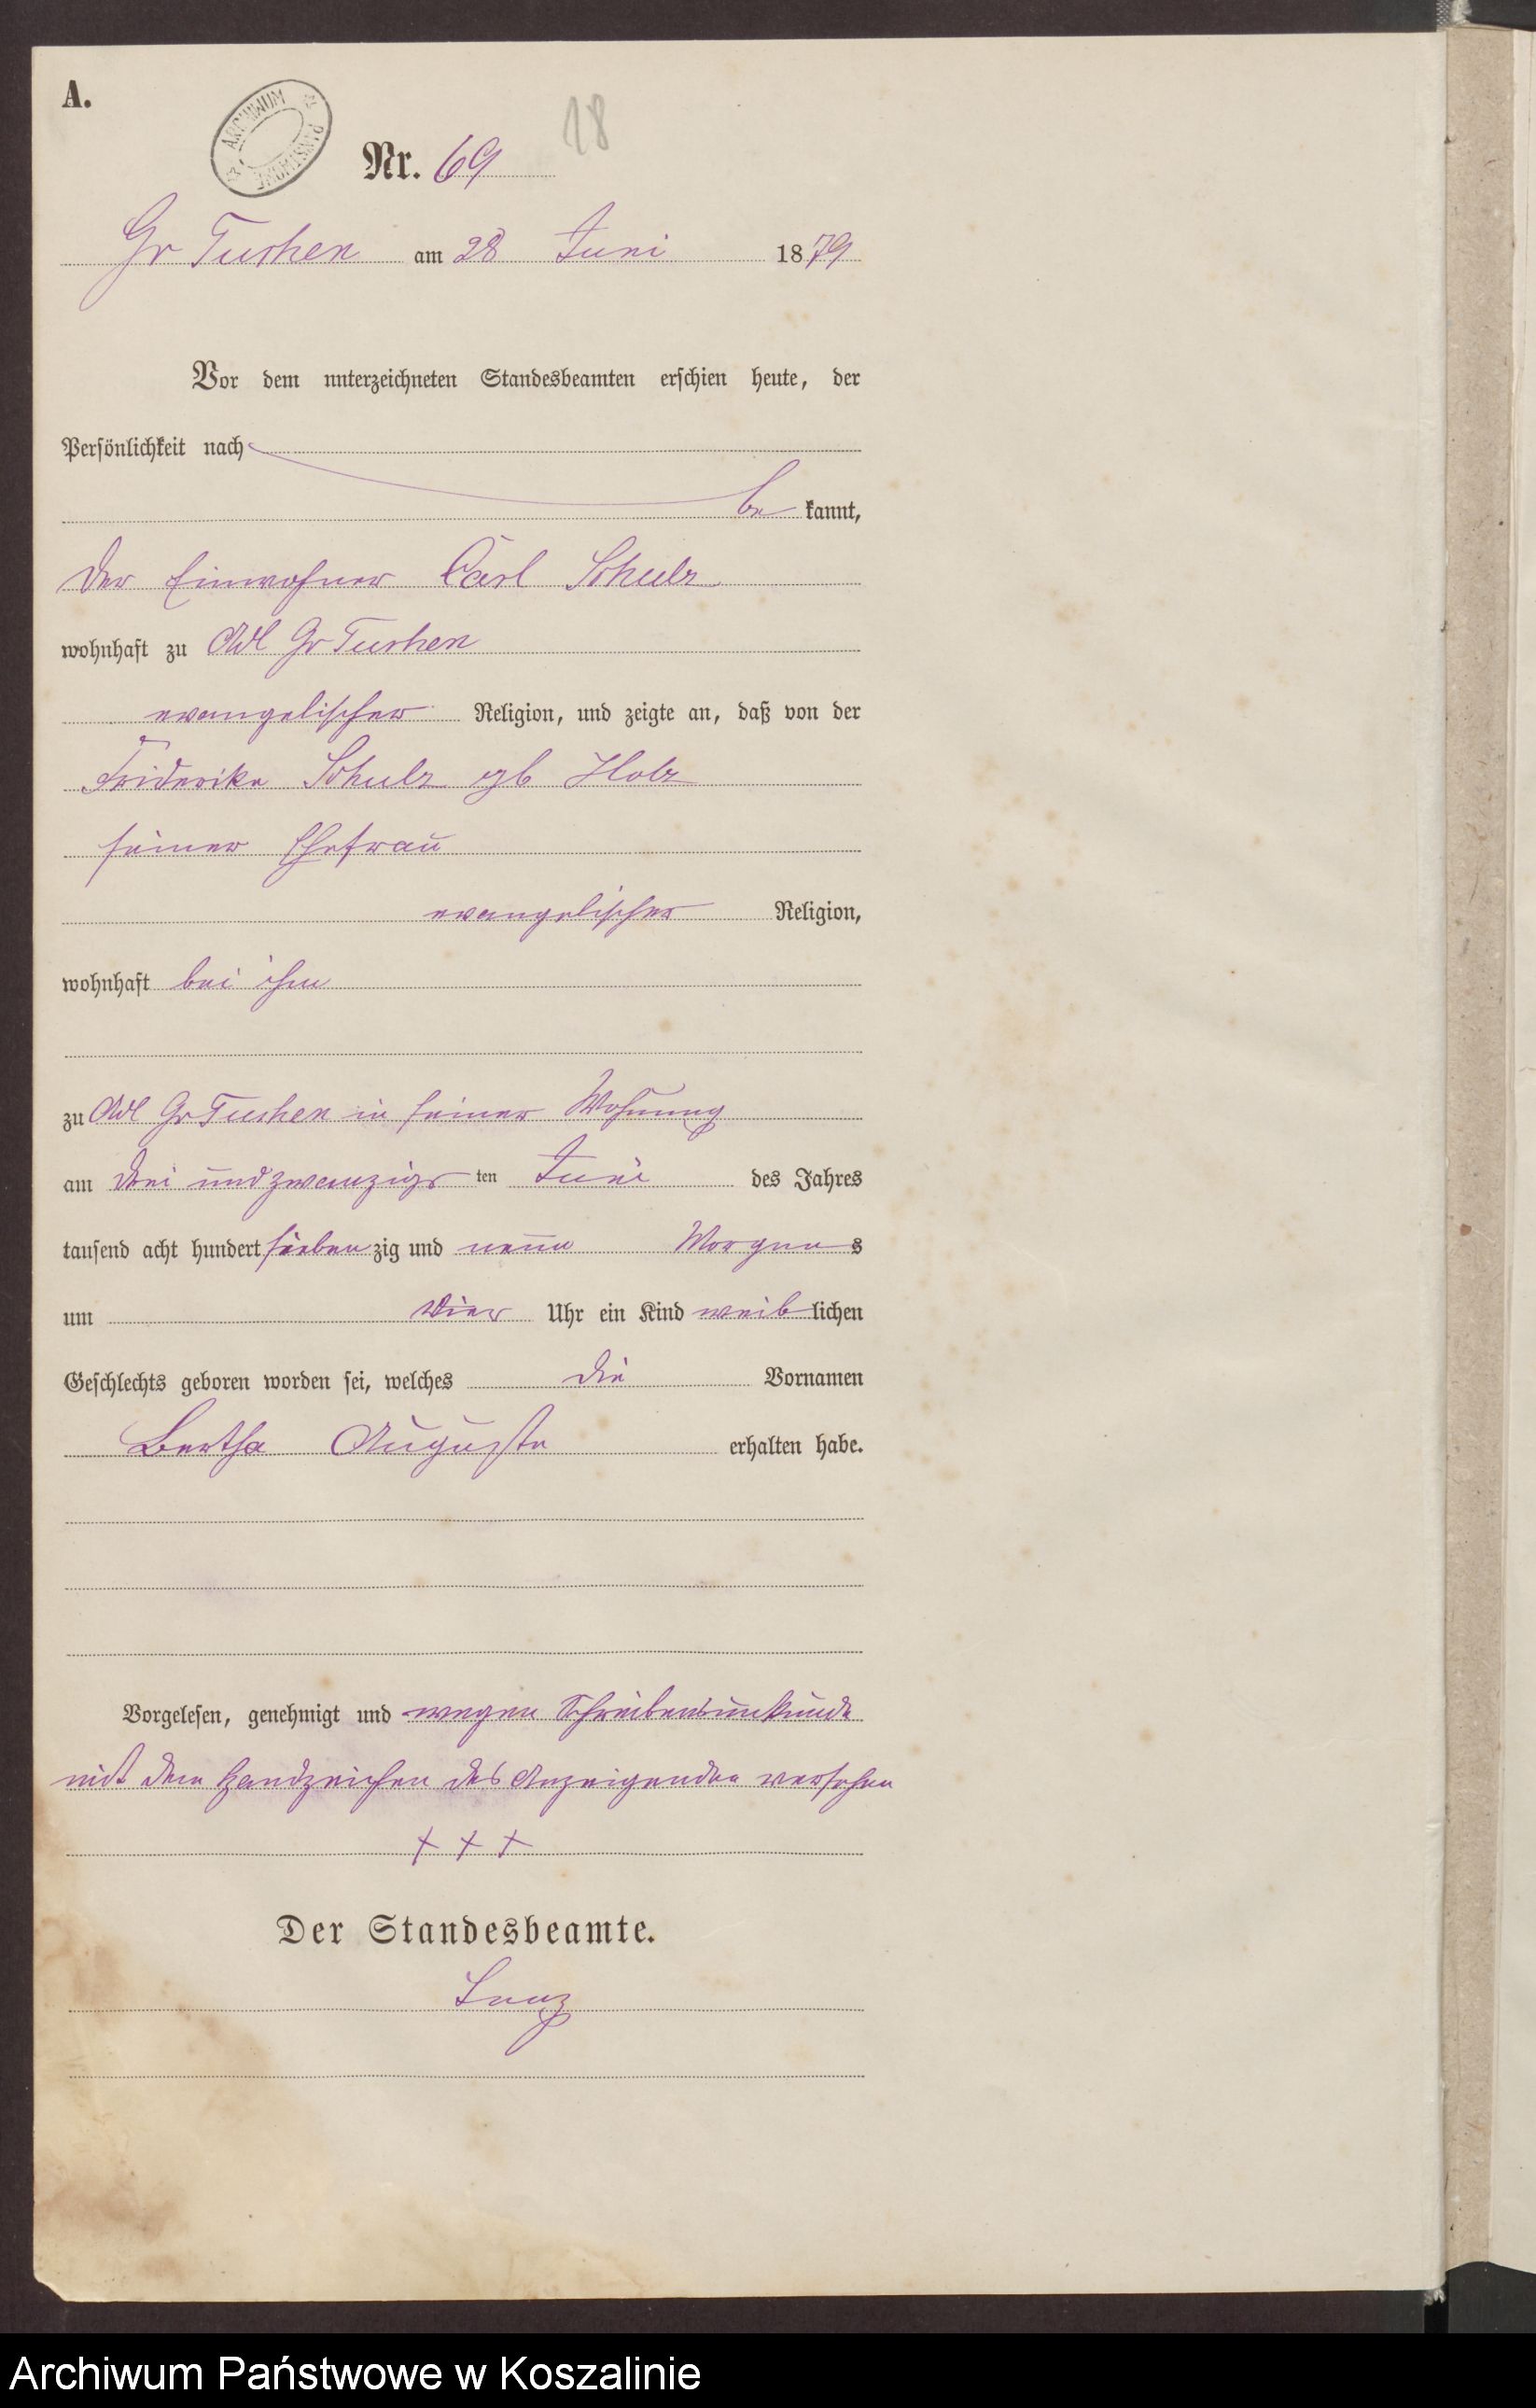 A.
ARCHIWUM PAŃSTWOWE
18
Nr. 69
Gr Tuchen am 28 Juni 1879
Vor dem unterzeichneten Standesbeamten erschien heute, der
Persönlichkeit nach
be kannt,
der Einwohner Carl Schulz
wohnhaft zu Adl Gr Tuchen
evangelischer Religion, und zeigte an, daß von der
Friderike Schulz gb Holz
seiner Ehefrau
evangelischer Religion,
wohnhaft bei ihm
zu Adl Gr Tuchen in seiner Wohnung
am drei und zwanzigs ten Juni des Jahres
tausend acht hundert sieben zig und neun Morgens
um vier Uhr ein Kind weiblichen
Geschlechts geboren worden sei, welches die Vornamen
Bertha Auguste erhalten habe.
Vorgelesen, genehmigt und wegen Schreibensunkunde
mit dem Handzeichen des Anzeigenden versehen
+ + +
Der Standesbeamte.
Archiwum Państwowe w Koszalinie